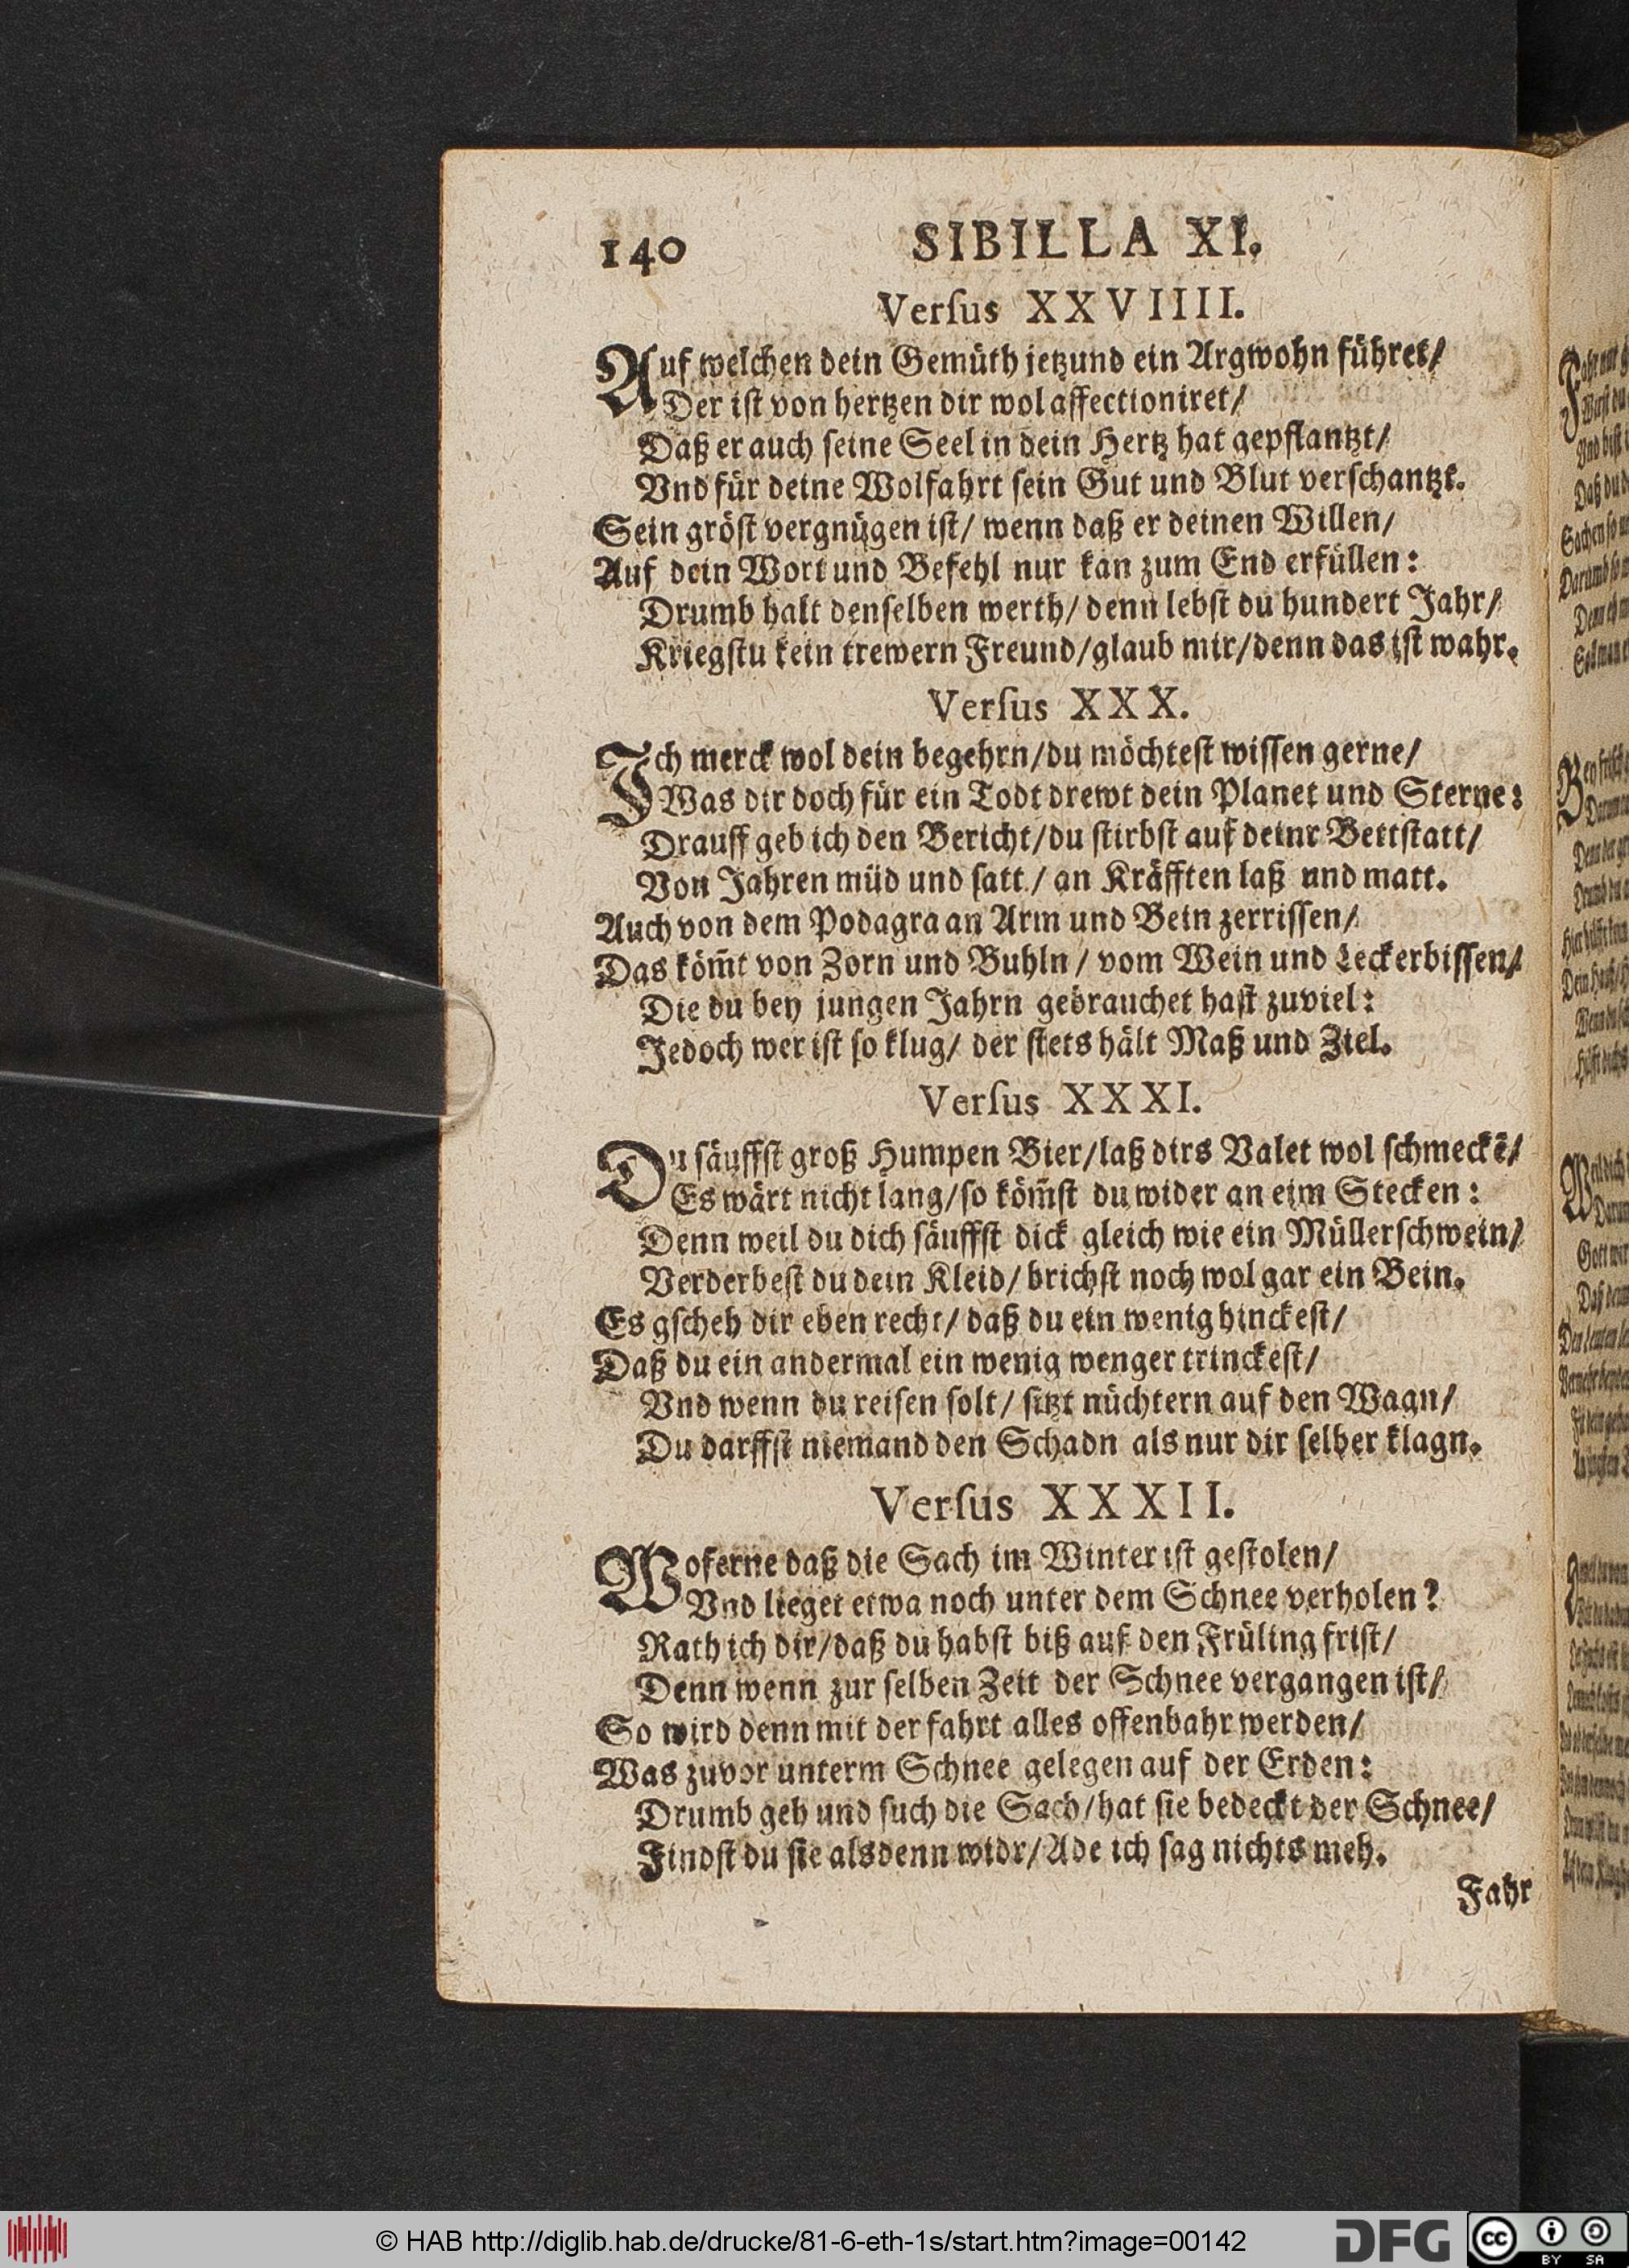 140 SIBILLA XI.
Verſus XXVIIII.
Auf welchen dein Gemüth jetzund ein Argwohn führet/
Der iſt von hertzen dir wol affectioniret/
Daß er auch ſeine Seel in dein Hertz hat gepflantzt/
Vnd für deine Wolfahrt ſein Gut und Blut verſchantzt.
Sein gröſt vergnügen iſt/ wenn daß er deinen Willen/
Auf dein Wort und Befehl nur kan zum End erfüllen:
Drumb halt denſelben werth/ denn lebſt du hundert Jahr/
Kriegſtu kein trewern Freund/glaub mir/denn das iſt wahr.
Verſus XXX.
Ich merck wol dein begehrn/du möchteſt wiſſen gerne/
Was dir doch für ein Todt drewt dein Planet und Sterne:
Drauff geb ich den Bericht/du ſtirbſt auf deinr Bettſtatt/
Von Jahren müd und ſatt/ an Kräfften laß und matt.
Auch von dem Podagra an Arm und Bein zerriſſen/
Das köm̃t von Zorn und Buhln/ vom Wein und Leckerbiſſen/
Die du bey jungen Jahrn gebrauchet haſt zuviel:
Jedoch wer iſt ſo klug/ der ſtets hält Maß und Ziel.
Verſus XXXI.
Du ſäuffſt groß Humpen Bier/laß dirs Valet wol ſchmeckẽ/
Es wärt nicht lang/ſo köm̃ſt du wider an eim Stecken:
Denn weil du dich ſäuffſt dick gleich wie ein Müllerſchwein/
Verderbeſt du dein Kleid/ brichſt noch wol gar ein Bein.
Es gſcheh dir eben recht/ daß du ein wenig hinckeſt/
Daß du ein andermal ein wenig wenger trinckeſt/
Vnd wenn du reiſen ſolt/ ſitzt nüchtern auf den Wagn/
Du darffſt niemand den Schadn als nur dir ſelber klagn.
Verſus XXXII.
Woferne daß die Sach im Winter iſt geſtolen/
Vnd lieget etwa noch unter dem Schnee verholen?
Rath ich dir/daß du habſt biß auf den Früling friſt/
Denn wenn zur ſelben Zeit der Schnee vergangen iſt/
So wird denn mit der fahrt alles offenbahr werden/
Was zuvor unterm Schnee gelegen auf der Erden:
Drumb geh und ſuch die Sach/hat ſie bedeckt der Schnee/
Findſt du ſie alsdenn widr/Ade ich ſag nichts meh.
Fahr
© HAB http://diglib.hab.de/drucke/81-6-eth-1s/start.htm?image=00142
DFG
cc BY SA